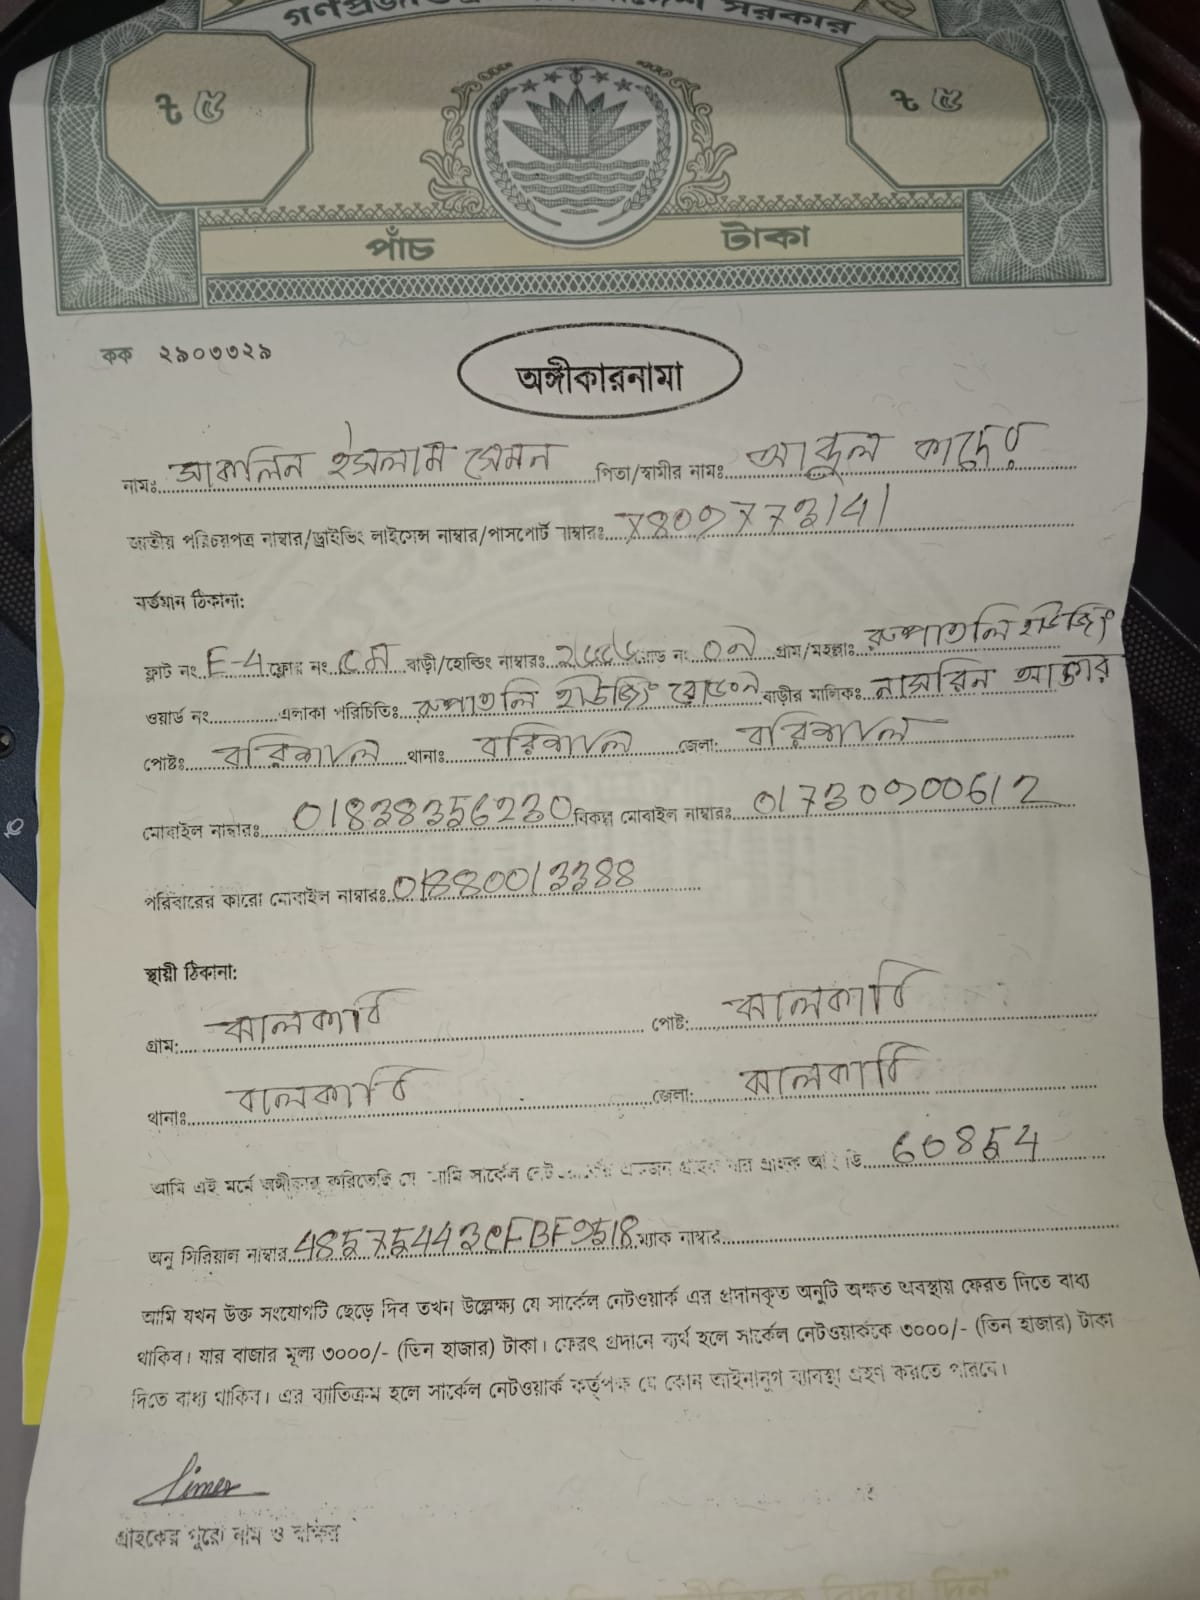 গণপ্রজাতন্ত্রী বাংলাদেশ সরকার
৳ ৫ ৳ ৫
পাঁচ টাকা
কক ২৯০৩৩২৯
অঙ্গীকারনামা
নামঃ ইসলাম পিতা/স্বামীর নামঃ কাদের
জাতীয় পরিচয়পত্র নাম্বার/ড্রাইভিং লাইসেন্স নাম্বার/পাসপোর্ট নাম্বারঃ
বর্তমান ঠিকানা:
ফ্লাট নং E-4 ফ্লোর নং ৫ম বাড়ী/হোল্ডিং নাম্বারঃ রোড নং গ্রাম/মহল্লাঃ রুপাতলি হাউজিং
ওয়ার্ড নং এলাকা পরিচিতিঃ রুপাতলি হাউজিং বাড়ীর মালিকঃ নাসরিন আক্তার
পোষ্টঃ বরিশাল থানাঃ বরিশাল জেলা: বরিশাল
মোবাইল নাম্বারঃ 01838356230 বিকল্প মোবাইল নাম্বারঃ
পরিবারের কারো মোবাইল নাম্বারঃ
স্থায়ী ঠিকানা:
গ্রাম: ঝালকাঠি পোষ্ট: ঝালকাঠি
থানাঃ ঝালকাঠি জেলা: ঝালকাঠি
আমি এই মর্মে অঙ্গীকার করিতেছি যে আমি সার্কেল একজন গ্রাহক যার গ্রাহক আই ডি 60854
অনু সিরিয়াল নাম্বার ম্যাক নাম্বার
আমি যখন উক্ত সংযোগটি ছেড়ে দিব তখন উল্লেক্ষ্য যে সার্কেল নেটওয়ার্ক এর প্রদানকৃত অনুটি অক্ষত অবস্থায় ফেরত দিতে বাধ্য
থাকিব। যার বাজার মূল্য ৩০০০/- (তিন হাজার) টাকা। ফেরৎ প্রদানে ব্যর্থ হলে সার্কেল নেটওয়ার্ককে ৩০০০/- (তিন হাজার) টাকা
দিতে বাধ্য থাকিব। এর ব্যাতিক্রম হলে সার্কেল নেটওয়ার্ক কর্তৃপক্ষ যে কোন আইনানুগ ব্যাবস্থা গ্রহণ করতে পারবে।
গ্রাহকের পুরো নাম ও স্বাক্ষর